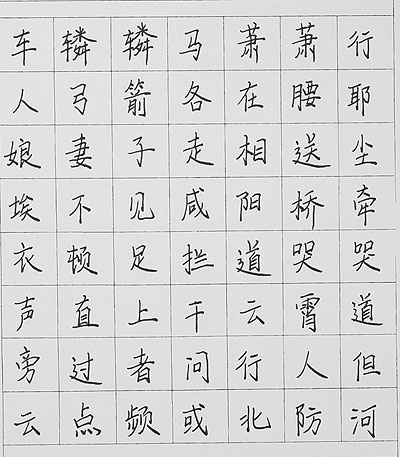 车辚辚马萧萧行
人弓箭各在腰耶
娘妻子走相送尘
埃不见咸阳桥牵
衣顿足拦道哭哭
声直上干云霄道
旁过者问行人但
云点频或北防河